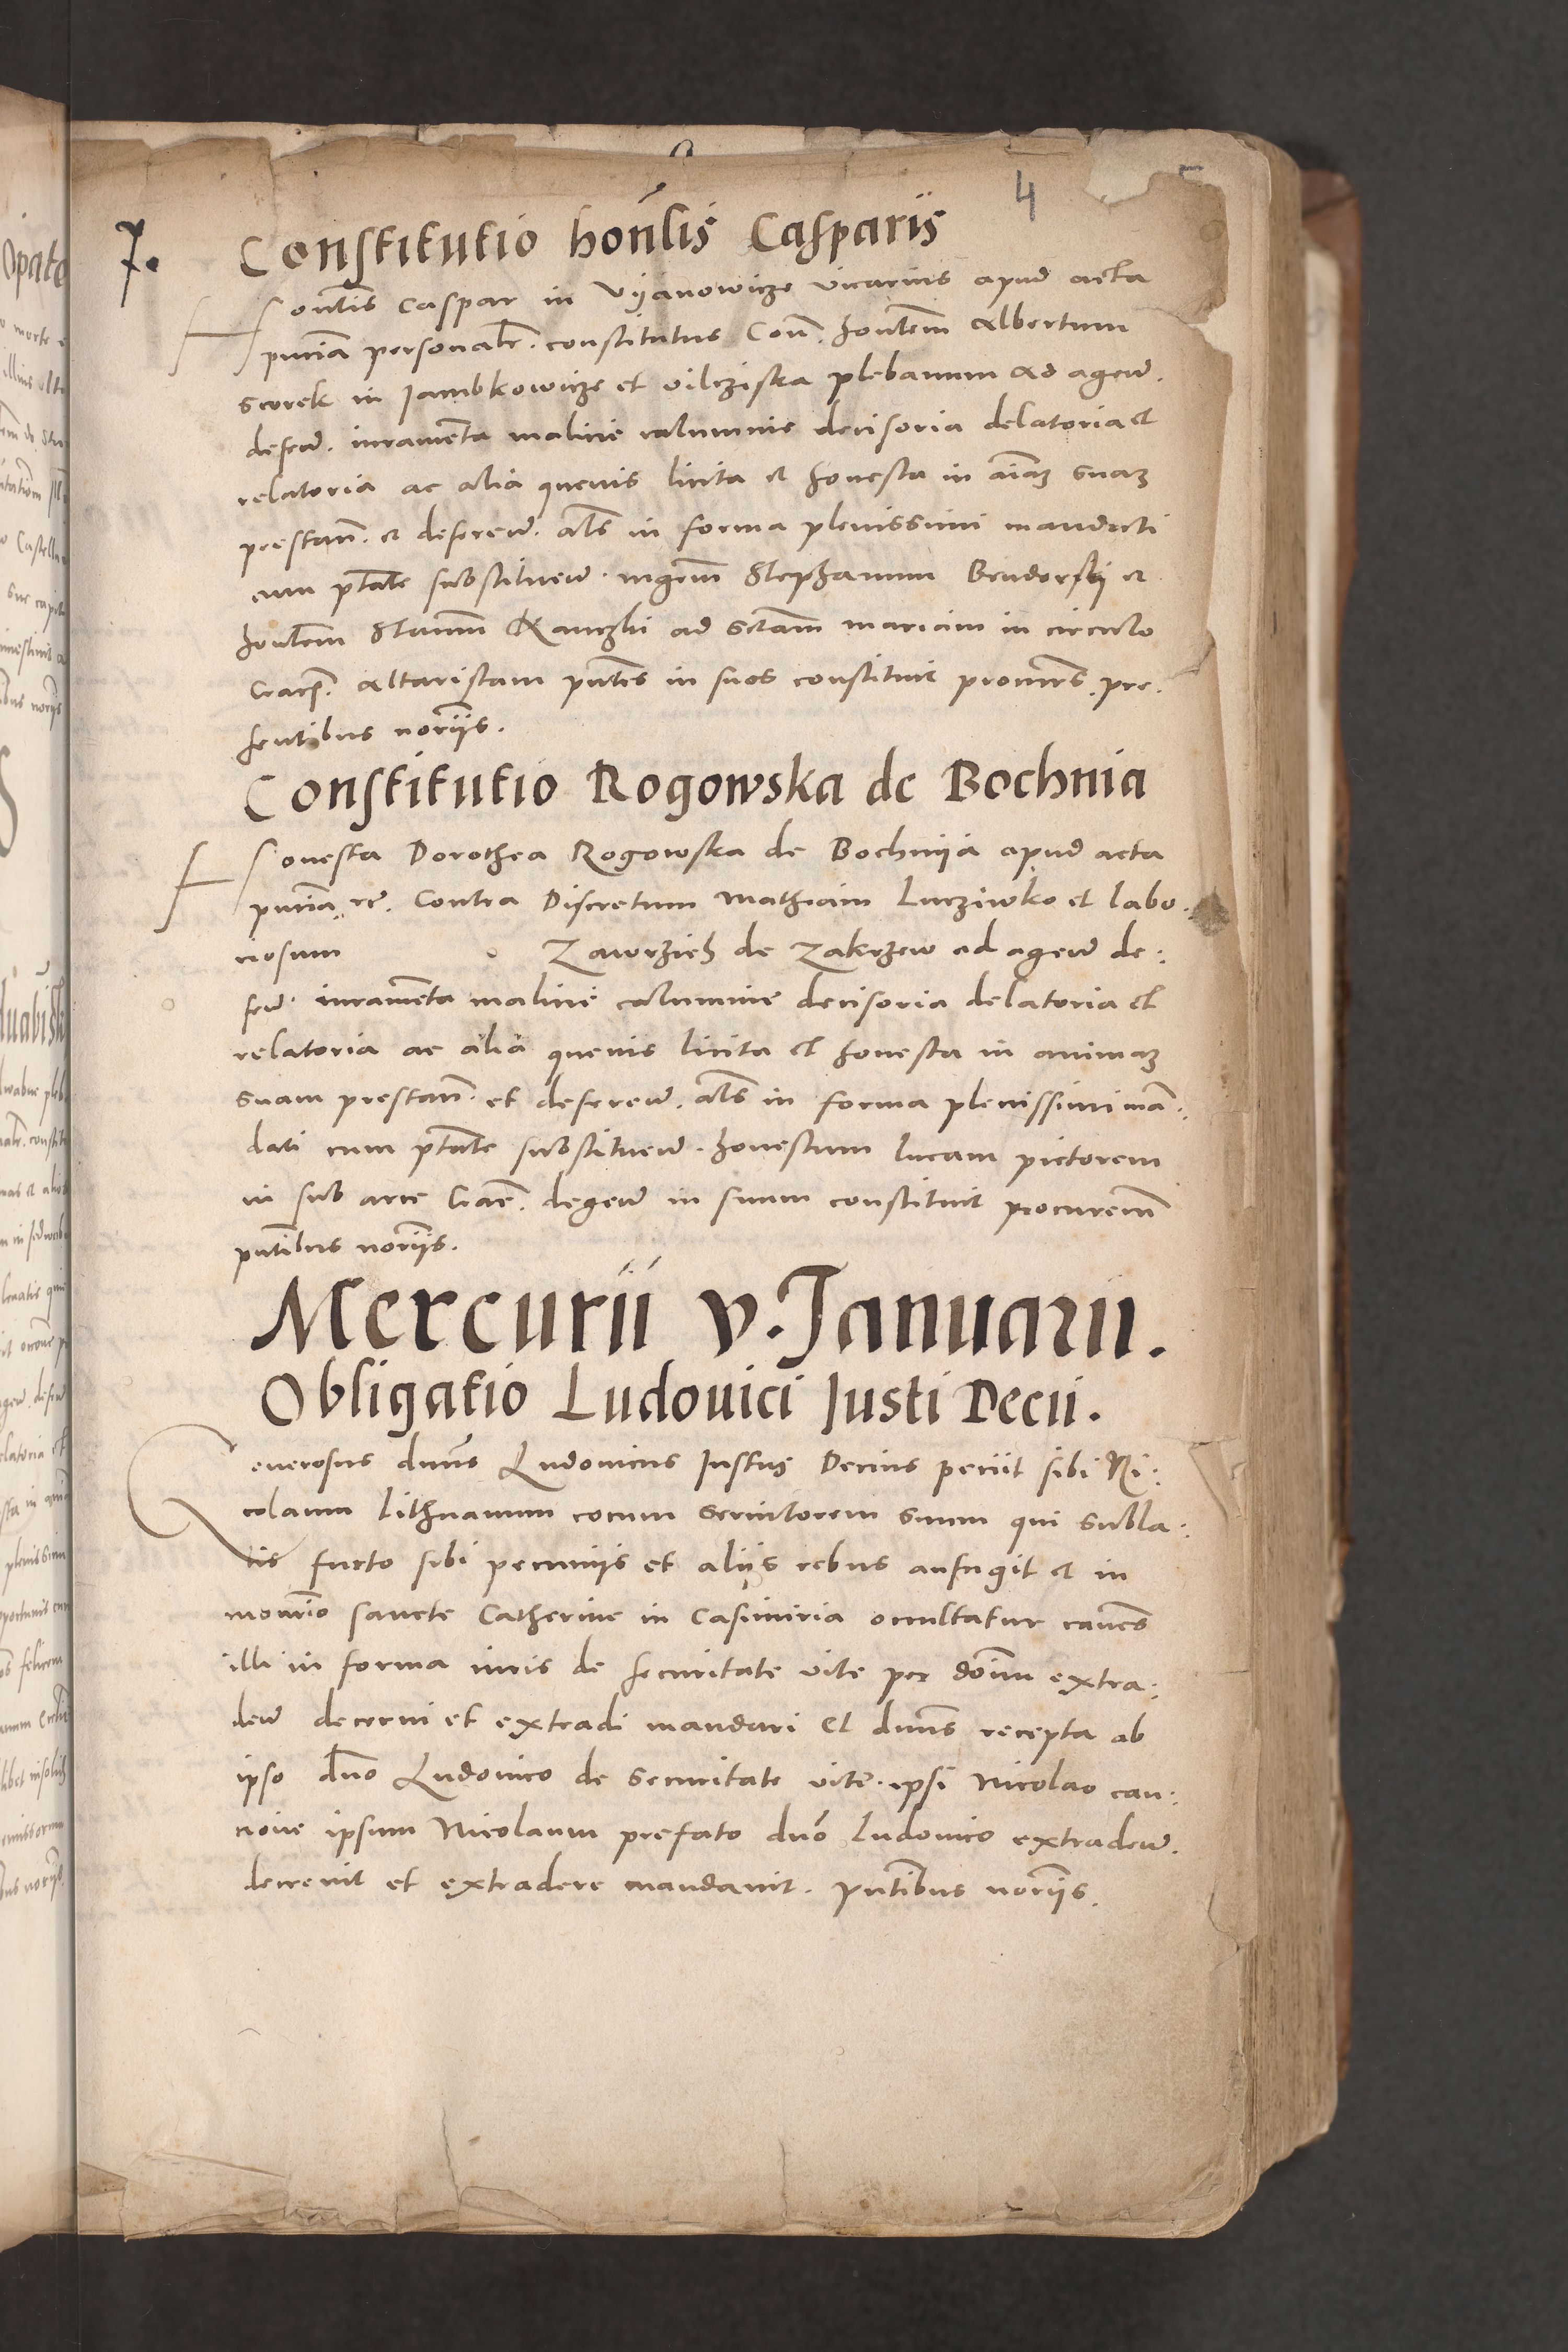 4
7.
Constitutio honlis Casparis
Honlis Caspar in Vijanowicze vicarius apud acta
pntia personalr. constitutus Con. honlem Albertum
Scorek in Jambkowicze et vilcziska plebanum ad agend.
defend. iuramenta malicie calumnie decisoria delatoria et
relatoria ac alia quevis licita et honesta in aiam suam
prestan. et deferend. als in forma plenissimi mandati
cum ptate substituend. mgrm Stephanum et
honlem Stanm ad sctam mariam in circulo
Crac. altaristam pntes in suos constituit procures. pre.
sentibus noriis.
Constitutio Rogowska de Bochnia
Honesta Dorothea Rogowska de Bochnija apud acta
pntia etc. Contra Discretum Mathiam Lucziwko et labo.
riosum Zaworzich de Zakrzew ad agend de:
fend. iuramenta malicie calumnie decisoria delatoria et
relatoria ac alia quevis licita et honesta in animam
suam prestan. et deferend. als in forma plenissimi man:
dati cum ptate substituend. honestum lucam pictorem
in sub arce Crac. degend in suum constituit procurem
pntibus noriis.
Mercurii v. Januarii.
Obligatio Ludouici Justi Decii.
Generosus dnus Ludovicus Justus Decius petiit sibi Ni:
colaum lithuanum cocum servitorem suum qui subla:
tis furto sibi pecuniis et aliis rebus aufugit et in
monrio sancte Catherine in Casimiria occultatur cavens
illi in forma iuris de securitate vite per domin extra:
dend decerni et extradi mandari Et dnus recepta ab
ipso dno Ludovico de securitate vite ipsi Nicolao cau:
cione ipsum Nicolaum prefato dno ludovico extradend.
decrevit et extradere mandavit. pntibus noriis.